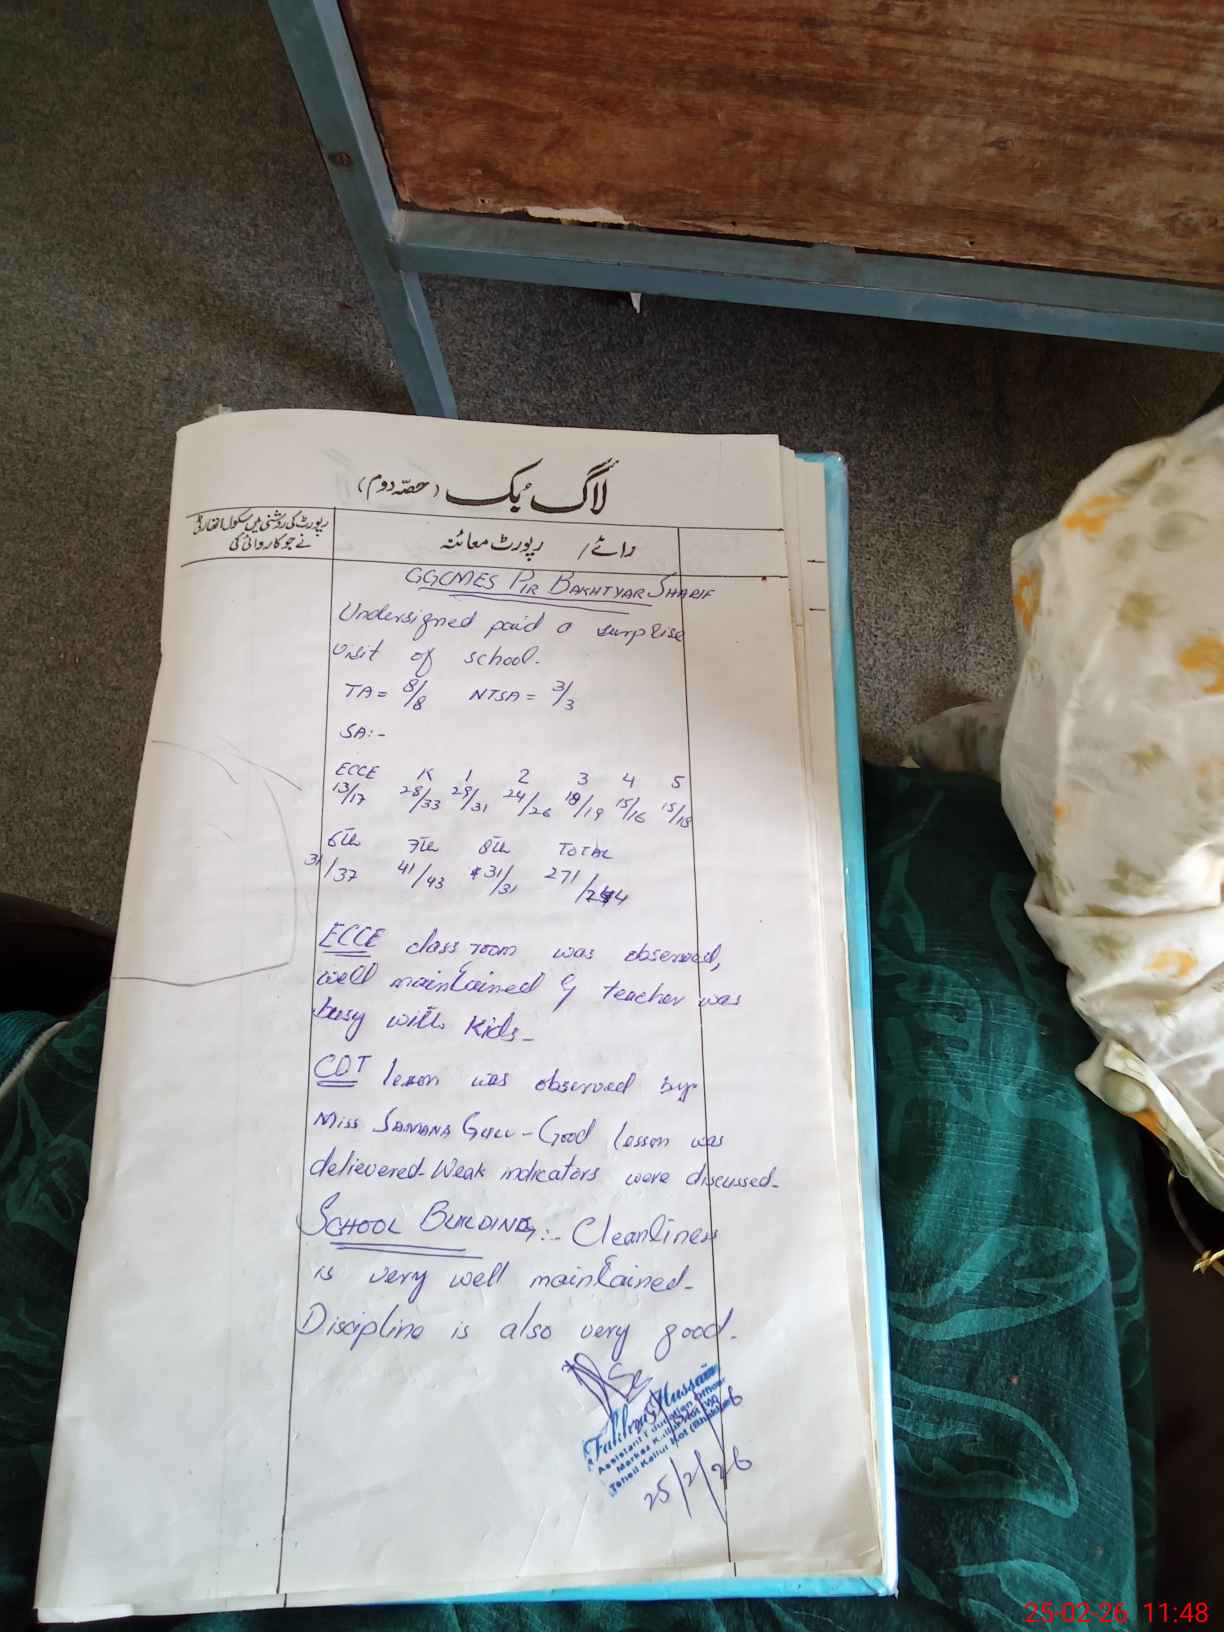 لاگ بک (حصہ دوم)
رپورٹ کی روشنی میں سکول اتھارٹی
نے جو کاروائی کی
رائے / رپورٹ معائنہ
GGCMES PIR BAKHTYAR SHARIF
Undersigned paid a surprise
visit of school.
TA = 8/8 NTSA = 3/3
SA:-
ECCE K 1 2 3 4 5
13/17 28/33 29/31 24/26 18/19 15/16 15/18
6th 7th 8th TOTAL
31/37 41/43 31/31 271/
ECCE class room was observed,
well maintained & teacher was
busy with kids-
COT lesson was observed by
Miss SAMANA GULL - Good lesson was
delievered- Weak indicators were discussed-
SCHOOL BUILDING:- Cleanliness
is very well maintained-
Discipline is also very good-
Hussain
Assistant Education Officer
Markaz Kallur Kot (W)
Tehsil Kallur Kot (Bhakkar)
25/2/26
25-02-26 11:48